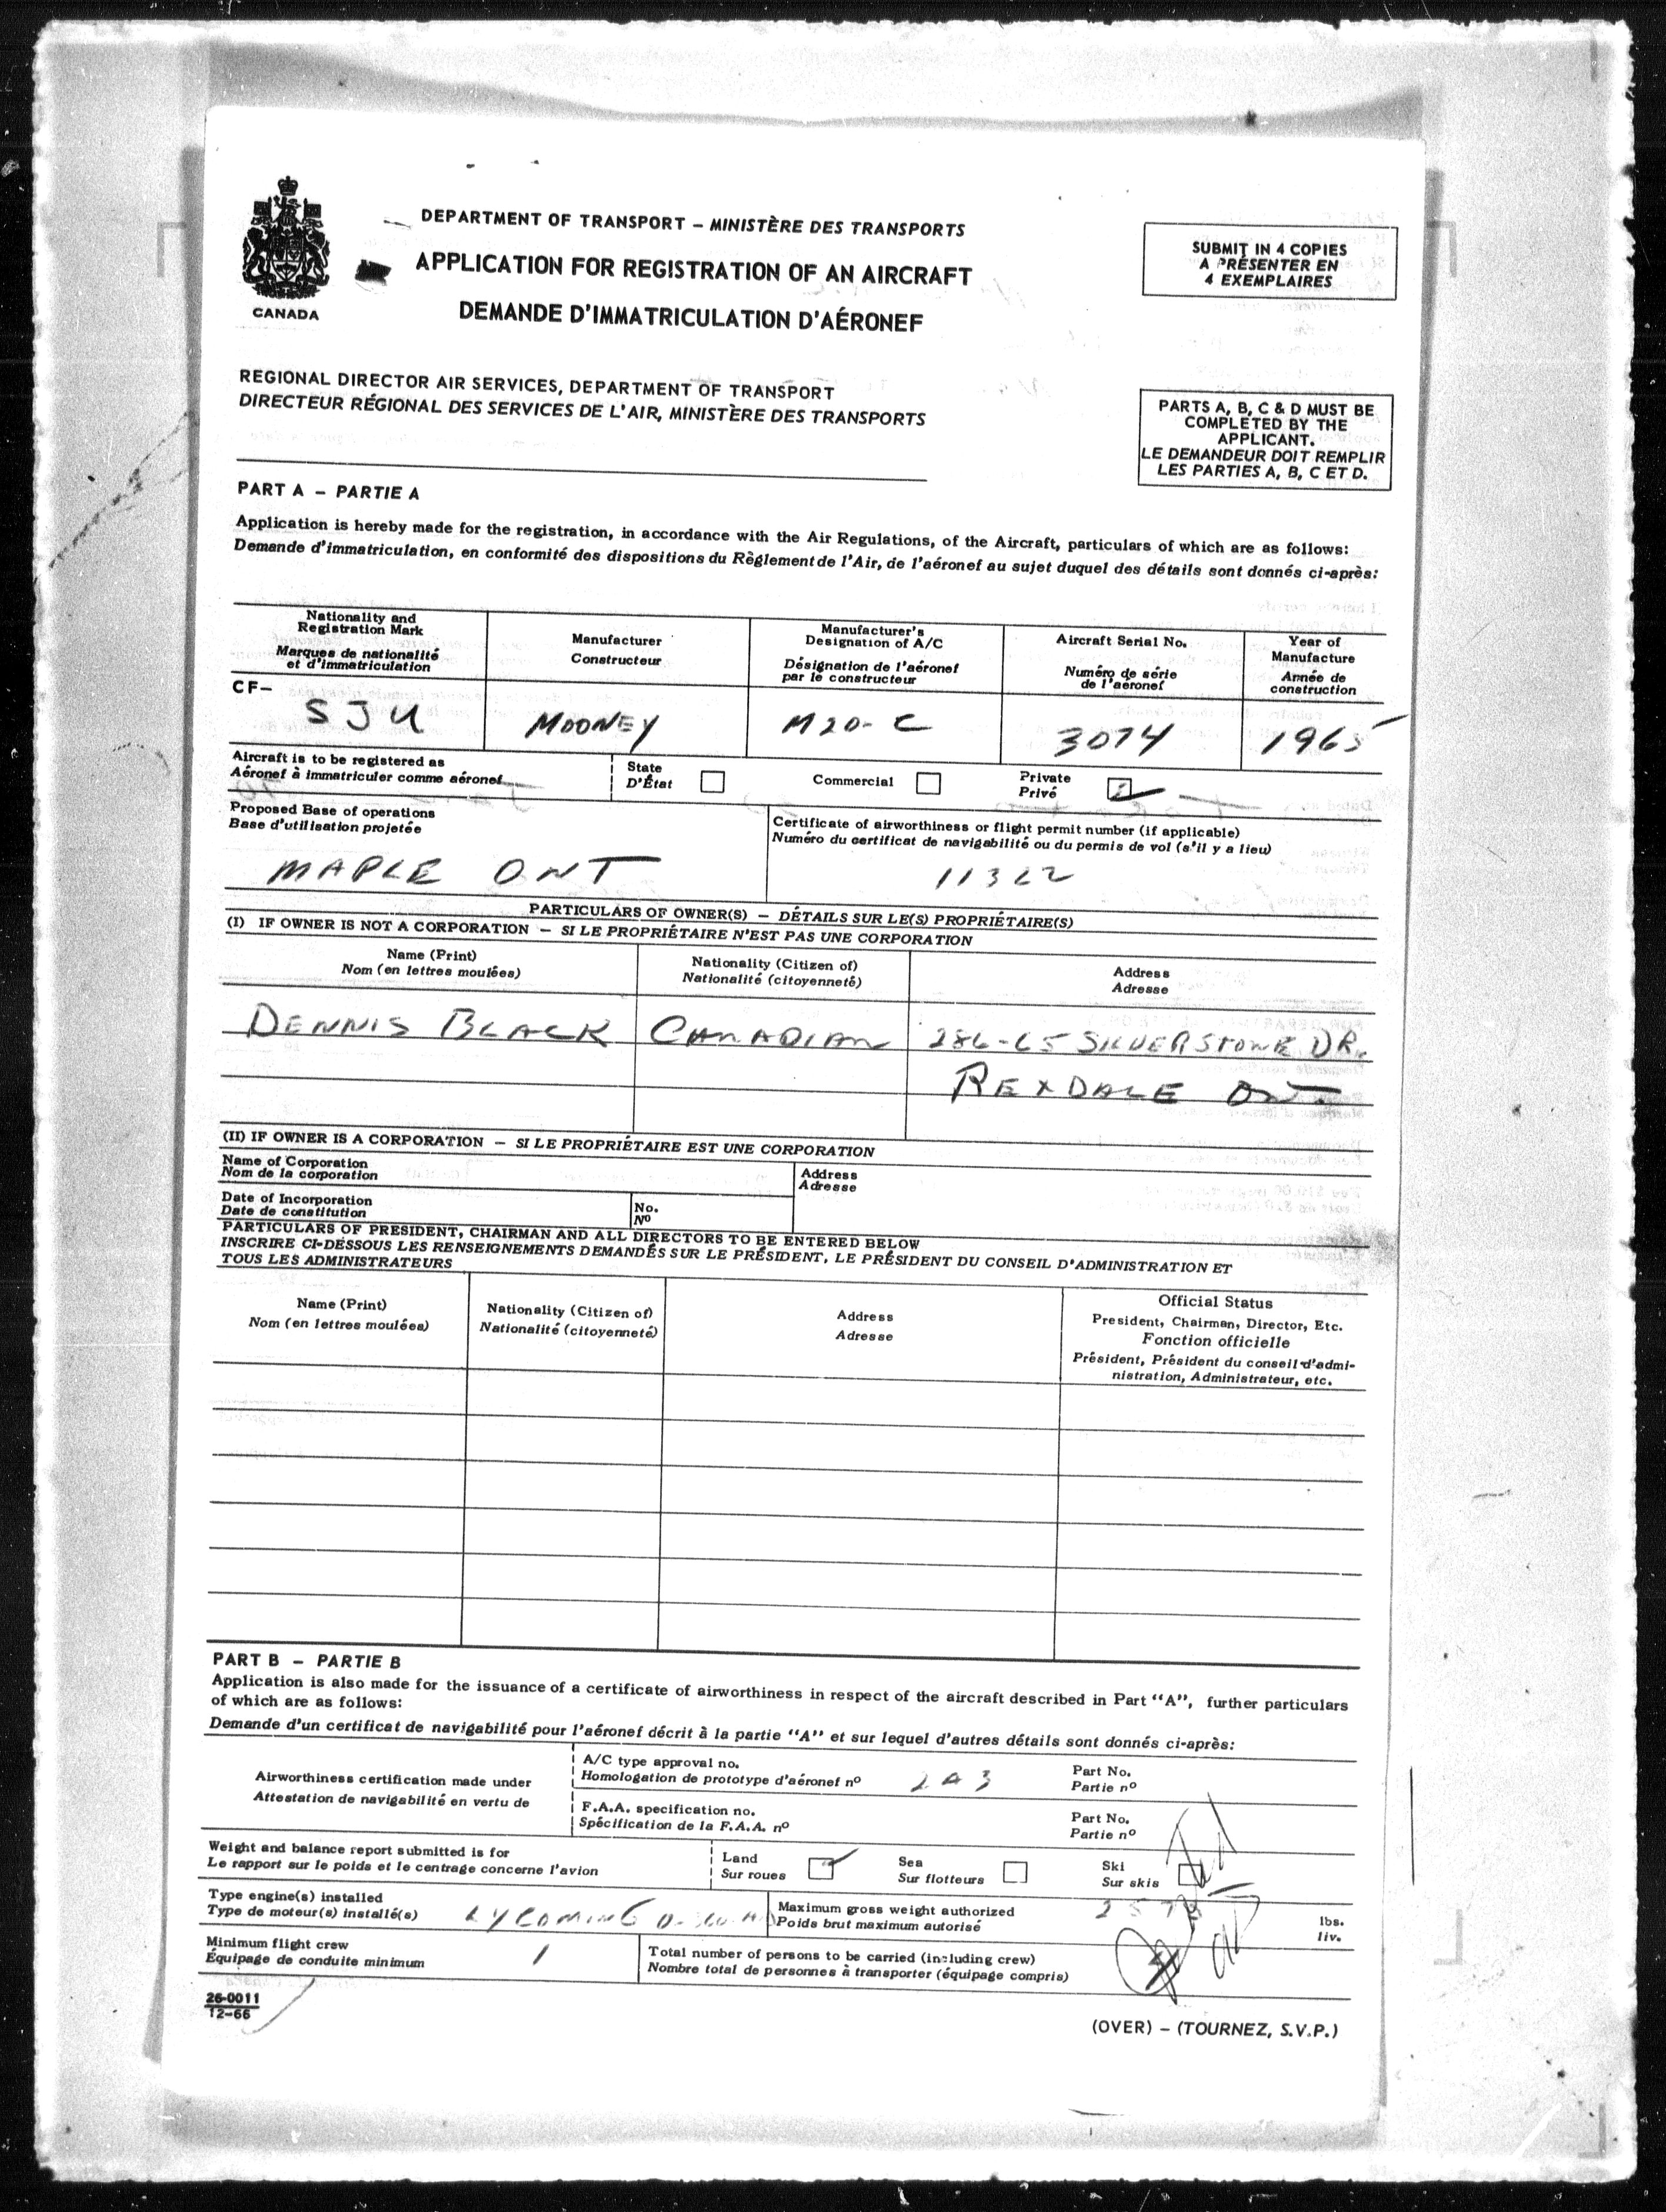 DEPARTMENT OF TRANSPORT – MINISTÈRE DES TRANSPORTS
APPLICATION FOR REGISTRATION OF AN AIRCRAFT
DEMANDE D'IMMATRICULATION D'AÉRONEF
CANADA
SUBMIT IN 4 COPIES
A PRÉSENTER EN
4 EXEMPLAIRES
REGIONAL DIRECTOR AIR SERVICES, DEPARTMENT OF TRANSPORT
DIRECTEUR RÉGIONAL DES SERVICES DE L'AIR, MINISTÈRE DES TRANSPORTS
PARTS A, B, C & D MUST BE
COMPLETED BY THE
APPLICANT.
LE DEMANDEUR DOIT REMPLIR
LES PARTIES A, B, C ET D.
PART A – PARTIE A
Application is hereby made for the registration, in accordance with the Air Regulations, of the Aircraft, particulars of which are as follows:
Demande d'immatriculation, en conformité des dispositions du Règlement de l'Air, de l'aéronef au sujet duquel des détails sont donnés ci-après:
Nationality and
Registration Mark
Marques de nationalité
et d'immatriculation
Manufacturer
Constructeur
Manufacturer's
Designation of A/C
Désignation de l'aéronef
par le constructeur
Aircraft Serial No.
Numéro de série
de l'aéronef
Year of
Manufacture
Année de
construction
CF-
SJU
MOONEY
M20-C
3074
1965
Aircraft is to be registered as
Aéronef à immatriculer comme aéronef
State
D'État
Commercial
Private
Privé
Proposed Base of operations
Base d'utilisation projetée
MAPLE ONT
Certificate of airworthiness or flight permit number (if applicable)
Numéro du certificat de navigabilité ou du permis de vol (s'il y a lieu)
PARTICULARS OF OWNER(S) – DÉTAILS SUR LE(S) PROPRIÉTAIRE(S)
(I) IF OWNER IS NOT A CORPORATION – SI LE PROPRIÉTAIRE N'EST PAS UNE CORPORATION
Name (Print)
Nom (en lettres moulées)
Nationality (Citizen of)
Nationalité (citoyenneté)
Address
Adresse
DENNIS BLACK
CANADIAN
SILVERSTONE DR.
REXDALE ONT
(II) IF OWNER IS A CORPORATION – SI LE PROPRIÉTAIRE EST UNE CORPORATION
Name of Corporation
Nom de la corporation
Address
Adresse
Date of Incorporation
Date de constitution
No.
Nº
PARTICULARS OF PRESIDENT, CHAIRMAN AND ALL DIRECTORS TO BE ENTERED BELOW
INSCRIRE CI-DESSOUS LES RENSEIGNEMENTS DEMANDÉS SUR LE PRÉSIDENT, LE PRÉSIDENT DU CONSEIL D'ADMINISTRATION ET
TOUS LES ADMINISTRATEURS
Name (Print)
Nom (en lettres moulées)
Nationality (Citizen of)
Nationalité (citoyenneté)
Address
Adresse
Official Status
President, Chairman, Director, Etc.
Fonction officielle
Président, Président du conseil d'admi-
nistration, Administrateur, etc.
PART B – PARTIE B
Application is also made for the issuance of a certificate of airworthiness in respect of the aircraft described in Part "A", further particulars
of which are as follows:
Demande d'un certificat de navigabilité pour l'aéronef décrit à la partie "A" et sur lequel d'autres détails sont donnés ci-après:
Airworthiness certification made under
Attestation de navigabilité en vertu de
A/C type approval no.
Homologation de prototype d'aéronef nº
2A3
Part No.
Partie nº
F.A.A. specification no.
Spécification de la F.A.A. nº
Part No.
Partie nº
Weight and balance report submitted is for
Le rapport sur le poids et le centrage concerne l'avion
Land
Sur roues
Sea
Sur flotteurs
Ski
Sur skis
Type engine(s) installed
Type de moteur(s) installé(s)
LYCOMING
Maximum gross weight authorized
Poids brut maximum autorisé
lbs.
liv.
Minimum flight crew
Équipage de conduite minimum
1
Total number of persons to be carried (including crew)
Nombre total de personnes à transporter (équipage compris)
26-0011
12-66
(OVER) – (TOURNEZ, S.V.P.)